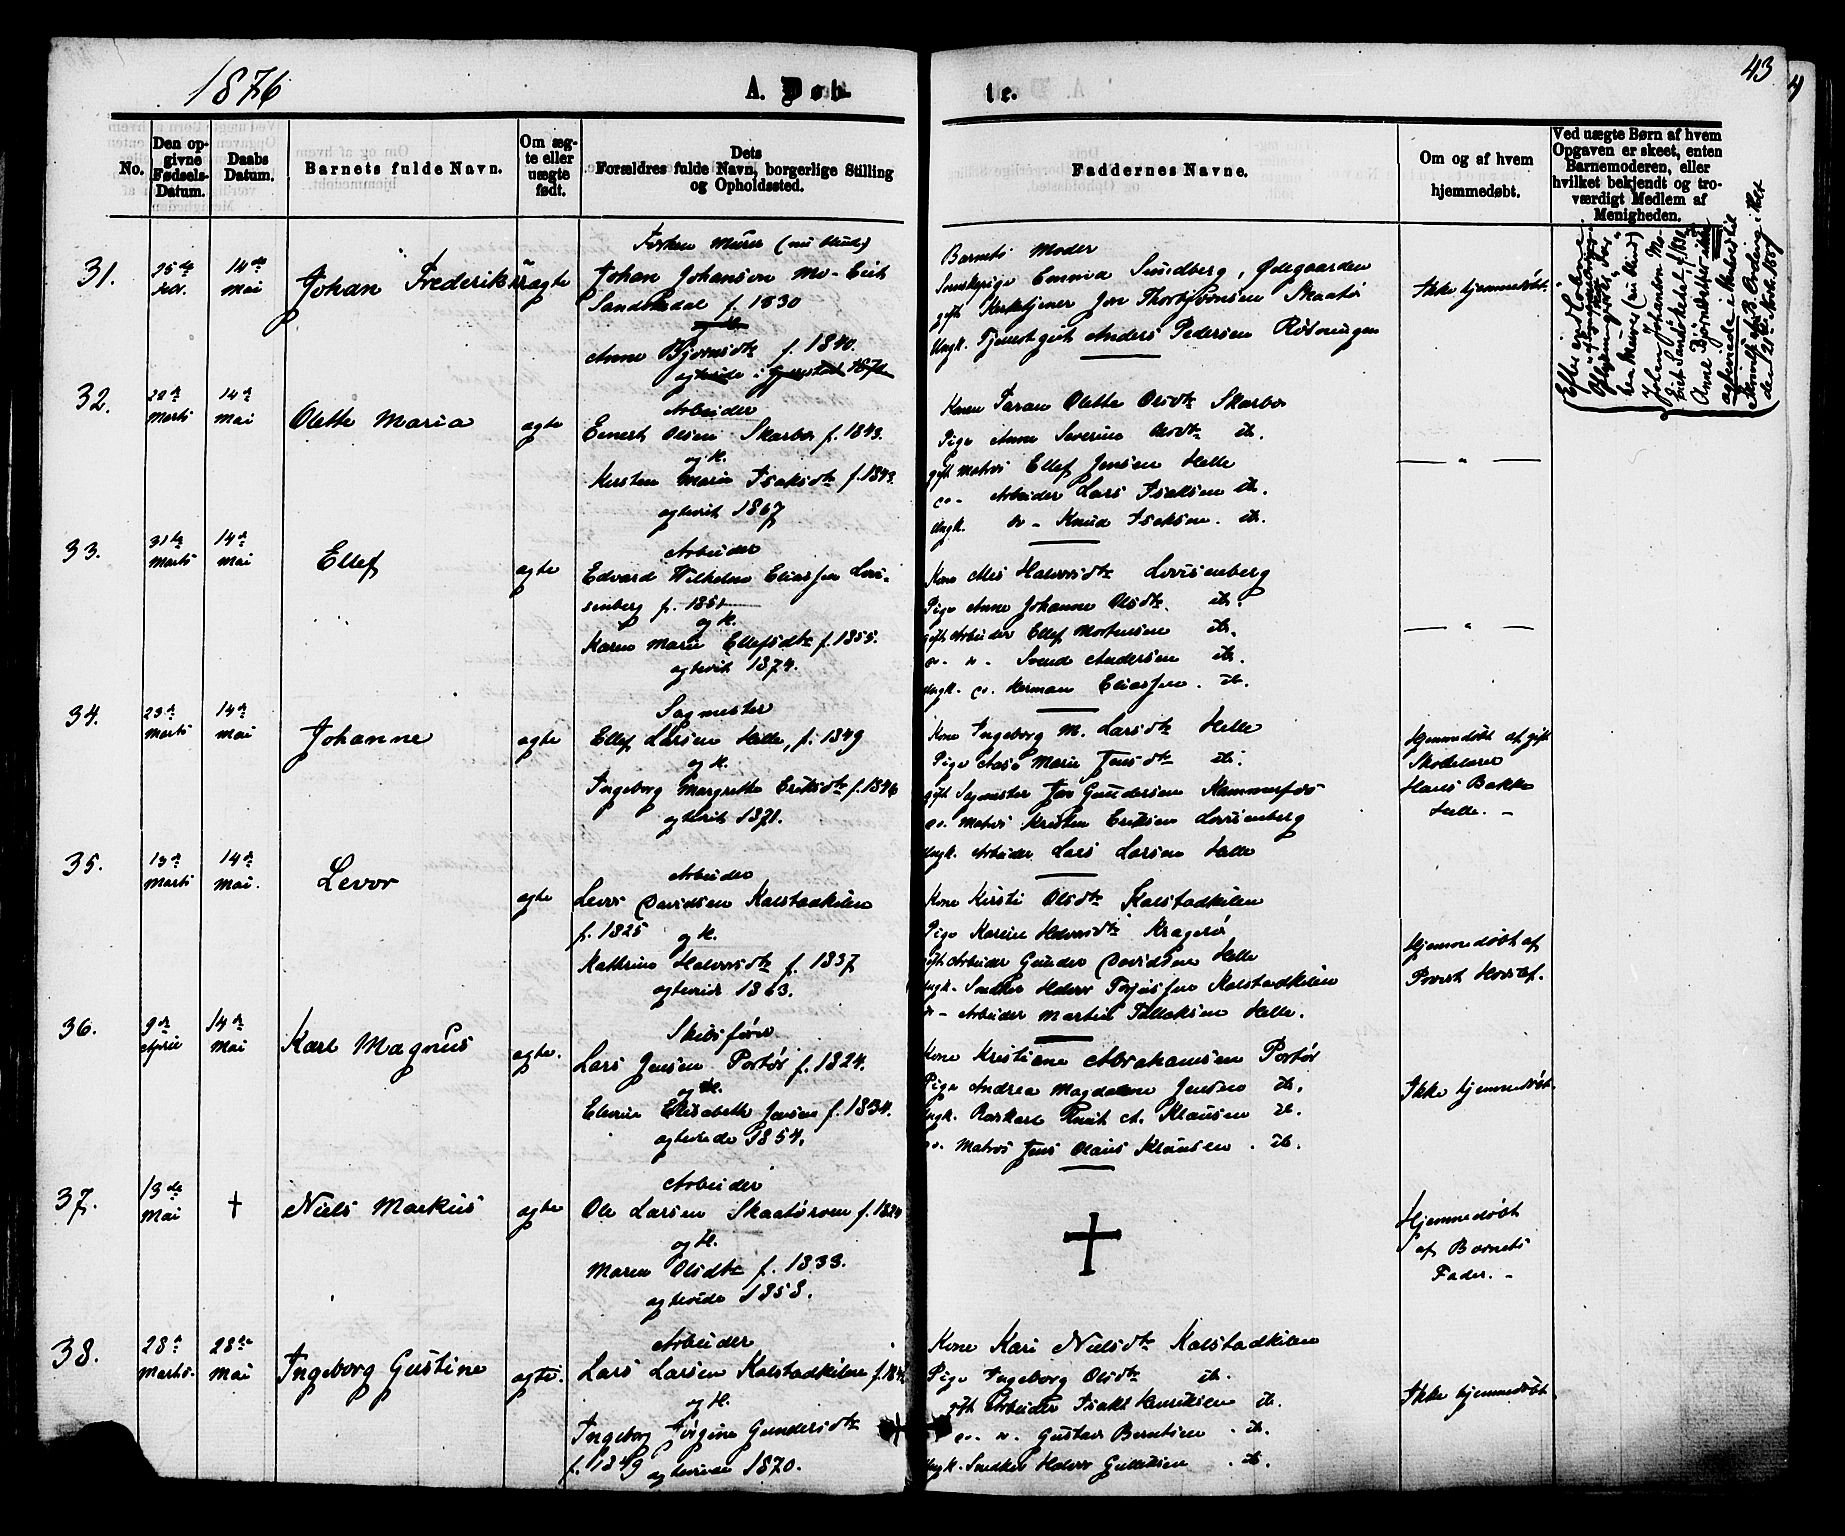 1876
A. Døb
te.
43
No.
Den opgivne Fødsels-Datum.
Daabs Datum.
Barnets fulde Navn.
Om ægte eller uægte født.
Dets Forældres fulde Navn, borgerlige Stilling og Opholdssted.
Faddernes Navne.
Om og af hvem hjemmedøbt.
Ved uægte Børn af hvem Opgaven er skeet, enten Barnemoderen, eller hvilket bekjendt og troværdigt Medlem af Menigheden.
31.
25de
Febr.
14de
Mai
Johan Frederik
uægte
Murer (nu blind)
Johan Johansen
f. 1830
Anne Bjørnsdtr f. 1840.
Barnets Moder
Emma Sundberg, Ødegaarden
gift Kirketjener Jon Thorbjørnsen Skaatø
Ungk. Tjenestgut Anders Pedersen
Ikke hjemmedøbt.
32.
28de
Marts
14de
Mai
Olette Maria
ægte
Arbeider
Ernest Olsen Skarbo f. 1843.
og H.
Kirsten Marie Isaksdtr f. 1843.
ægteviet 1867
Olette Olsdtr Skarbo
Pige Anne Severine Olsdtr it.
gift Matros Ellef Jensen Helle
do- Arbeider Lars Isaksen it.
Ungk. do- Knud Isaksen. it.
— „ —
33.
31te
Marts
14de
Mai
Ellef
ægte
Arbeider
Edvard Wilhelm Eliassen Lovi-
senberg f. 1851
og H.
Karen Marie Ellefsdtr f. 1855.
ægteviet 1874.
Kone Halvorsdtr Lovisenberg
Pige Anne Johanne Olsdtr. it.
gift Arbeider Ellef Mortensen it.
do. do. Svend Andersen it.
Ungk. do. Herman Eliassen. it.
— „ —
34.
23de
Marts
14de
Mai
Johanne
ægte
Sagmester
Ellef Larsen Helle, f. 1849
og H.
Ingeborg Margrethe Eriksdtr f. 1846
ægteviet 1871.
Kone Ingeborg M. Larsdtr Helle
Pige Aase Marie Jensdtr it.
gift Sagmester Jon Gundersen Kammerfos
do. Matros Kristen Eriksen Lovisenberg
Ungk. Arbeider Lars Larsen Helle
Hjemmedøbt af gift
Skolelærer
Hans Bakke
Helle. –
35.
13de
Marts
14de
Mai.
Levor
ægte
Arbeider
Levor Davidsen Kalstadkilen
f. 1825
og H.
Kathrine Halvorsdtr f. 1837
ægteviede 1863.
Kone Kirsti Olsdtr Kalstadkilen
Pige Karine Halvorsdtr Kragerø
gift Arbeider Gunder Davidsen Helle
Ungk. Snedker Halvor Torjusen Kalstadkilen
do – Arbeider Martin Tellefsen Helle.
Hjemmedøbt af
Provst
36.
9de
April
14de
Mai
Karl Magnus
ægte.
Skibsfører
Lars Jensen Portør f. 1824.
og H.
Elevine Elisabeth Jensen f. 1834.
ægteviede 1854.
Kone Kristiane Abrahamsen Portør
Pige Andrea Magdalene Jensen it.
Ungk. Knut A. Klausen it.
do. Matros Jens Olaus Klausen. it.
Ikke hjemmedøbt.
37.
13de
Mai
†
Niels Markus
ægte
Arbeider
Ole Larsen Skaatørøen f. 1824
og H.
Maren Olsdtr f. 1833.
ægteviede 1858.
†
Hjemmedøbt
af Barnets
Fader. –
38.
28de
Marts.
28de
Mai
Ingeborg Gustine
ægte.
Arbeider
Lars Larsen Kalstadkilen
og H.
Ingeborg Jørgine Gundersdtr
f. 1849 ægteviede 1870.
Kone Kari Nielsdtr Kalstadkilen
Pige Ingeborg Olsdtr it.
gift Arbeider Isak Henriksen it.
do. do. Gustav Berntsen. it.
Ungk. Snedker Halvor Gulliksen. it.
Ikke hjemmedøbt.